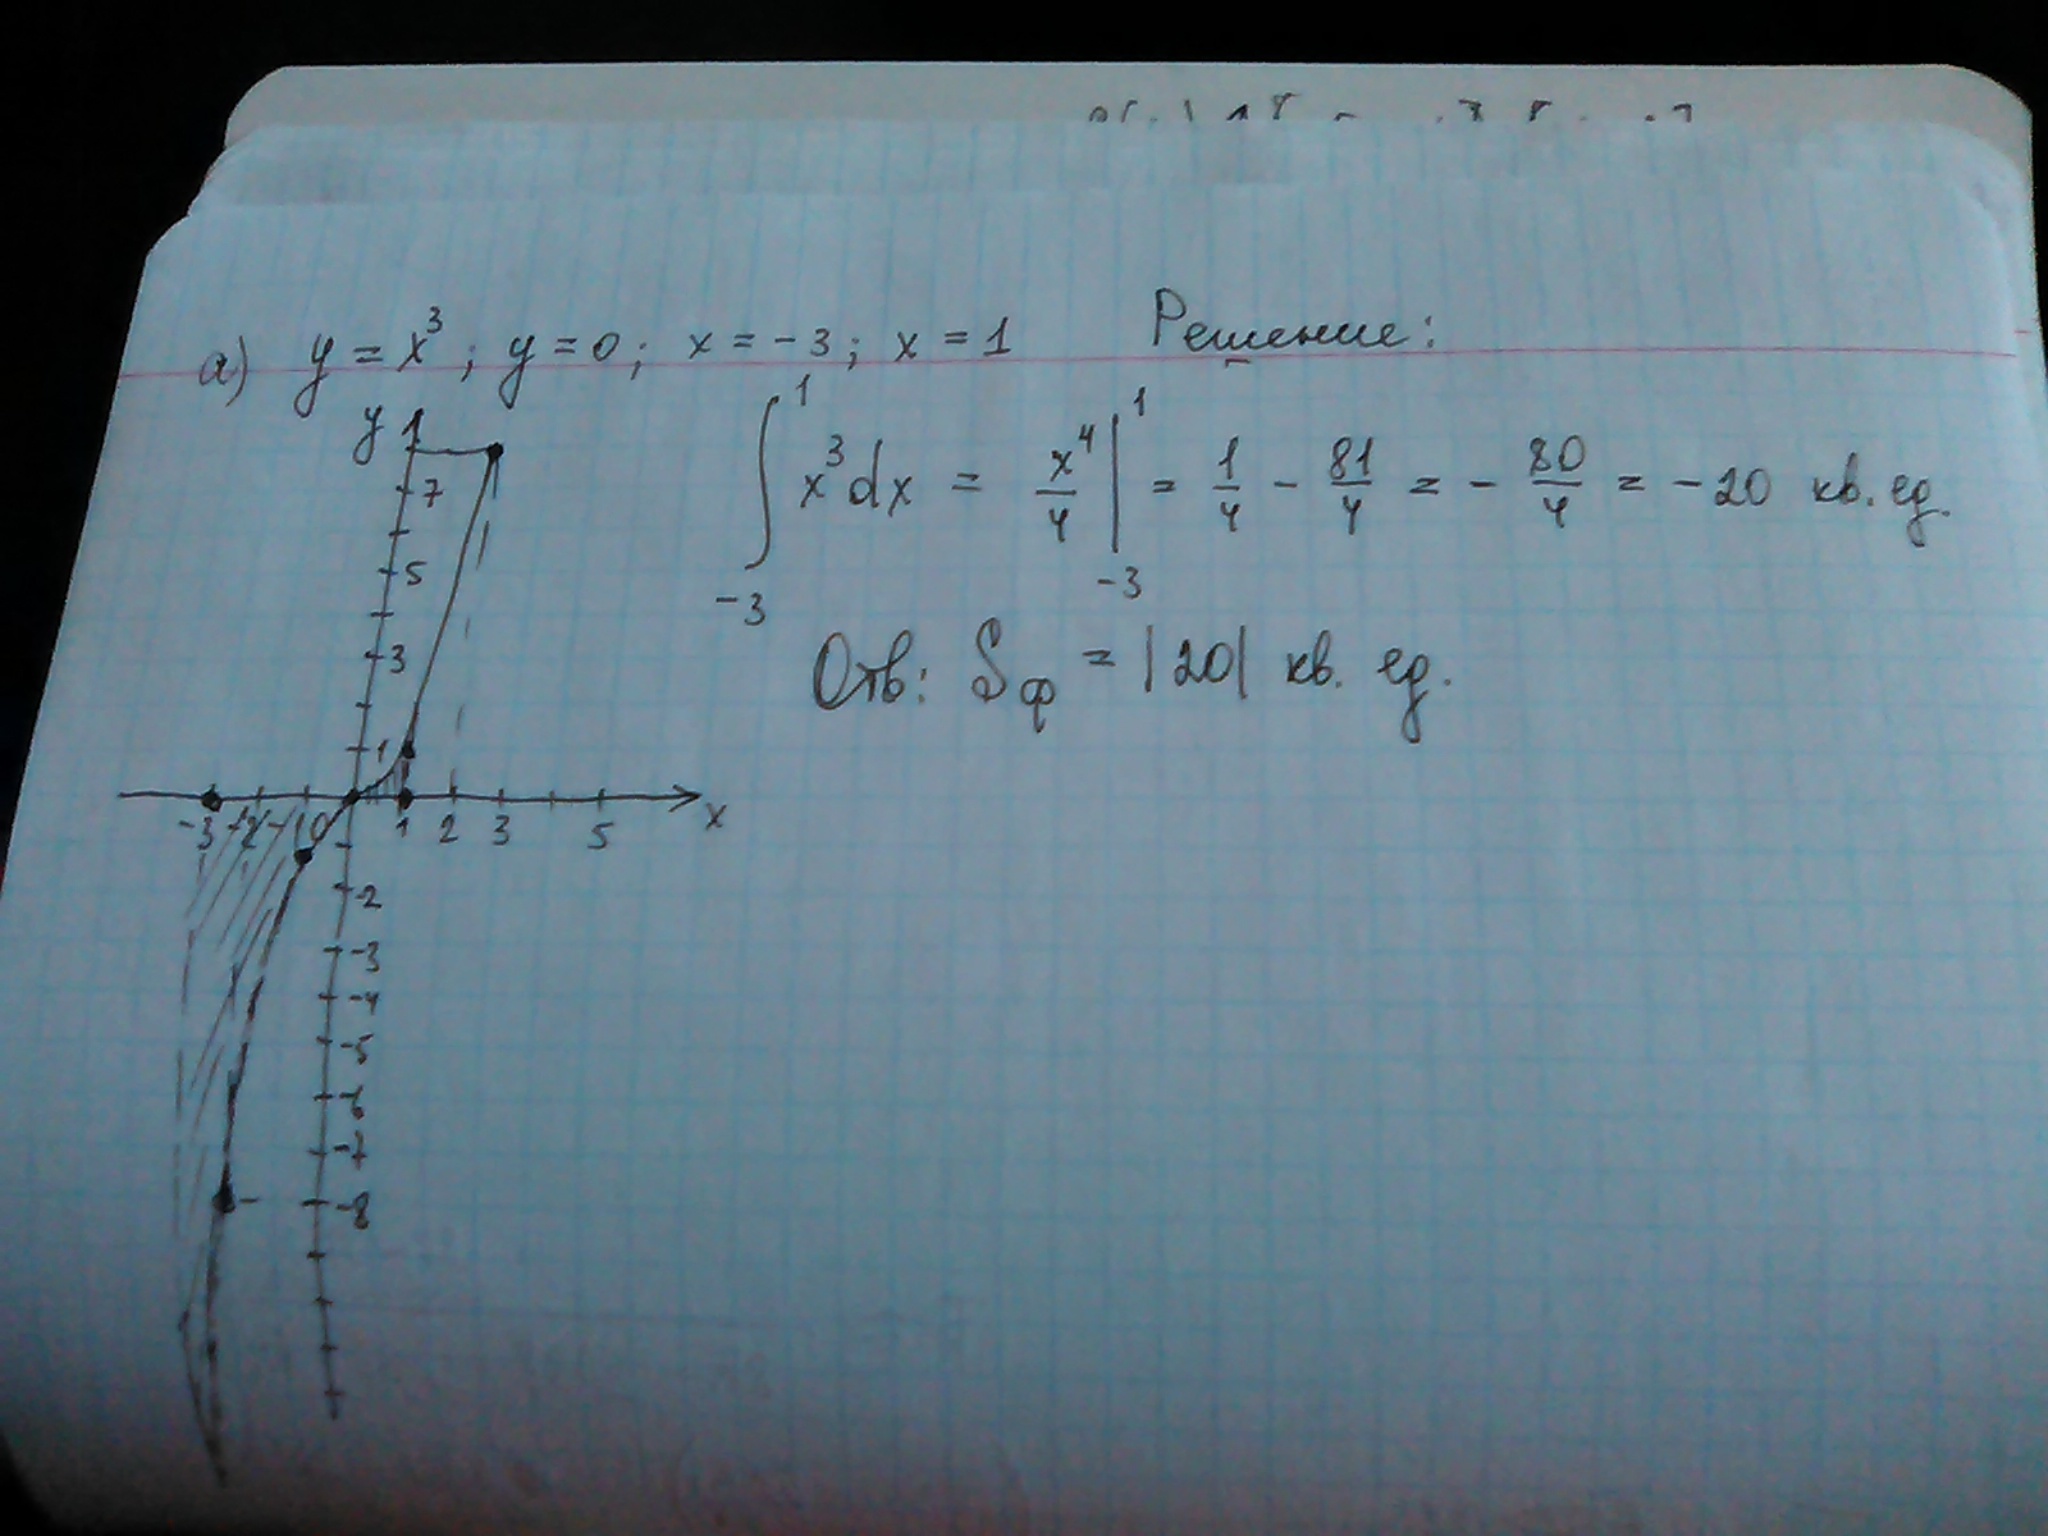 а) y = x³ ; y = 0 ; x = -3 ; x = 1 Решение:
∫₋₃¹ x³dx = x⁴/4 |₋₃¹ = 1/4 - 81/4 = - 80/4 = -20 кв. ед.
Отв: Sф = |20| кв. ед.
y
7
5
3
1
-3 -2 -1 0 1 2 3 5 x
-2
-3
-4
-5
-6
-7
-8